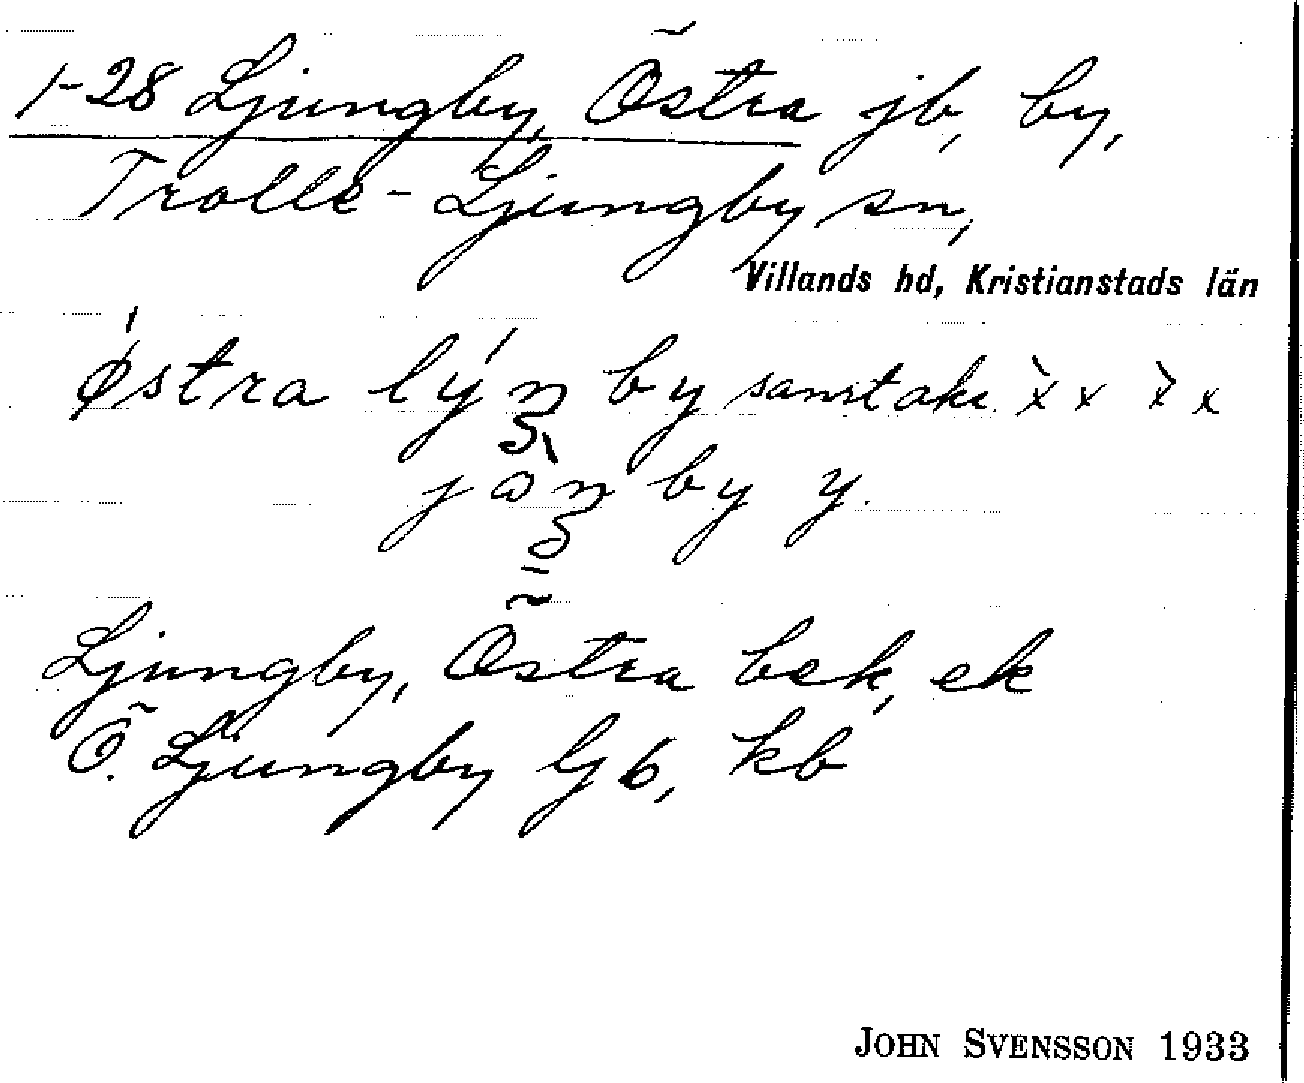 1-28 Ljungby, Östra jb, by,
Trolle-Ljungby sn,
Villands hd, Kristianstads län
østra lýŋ by samt akc. x̀ x x̀ x
jöŋ by y.
Ljungby, Östra bek, ek
Ö. Ljungby ljb, kb
JOHN SVENSSON 1933